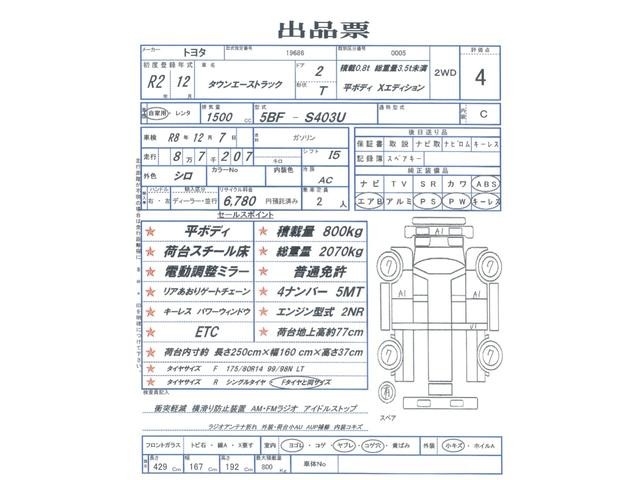 出品票
メーカー トヨタ 型式指定番号 19686 類別区分番号 0005 評価点
初度登録年式 車名 ドア 2 積載0.8t 総重量3.5t未満 2WD 4
R2 年 12 月 タウンエーストラック 形状 T 平ボディ Xエディション
自家用・レンタ 排気量 1500 CC 型式 5BF － S403U 通称型式 内装 C
車検 R8 年 12 月 7 日 燃料 ガソリン 後日送り品
走行 8 万 7 千 207 キロ シフト I5 保証書 取説 ナビ取 ナビロム キーレス
記録簿 スペアキー
外色 シロ カラーNo 内装色 冷房 AC 純正装備品
ナビ TV SR カワ ABS
ハンドル 輸入区分 リサイクル料金 乗車定員
右・左 ディーラー・並行 6,780 円預託済み 2 人 エアB アルミ PS PW キーレス
セールスポイント
平ボディ 積載量 800kg
荷台スチール床 総重量 2070kg
電動調整ミラー 普通免許
リアあおりゲートチェーン 4ナンバー 5MT
キーレス パワーウィンドウ エンジン型式 2NR
ETC 荷台地上高約77cm
荷台内寸約 長さ250cm×幅160 cm×高さ37cm
タイヤサイズ F 175/80R14 99/98N LT
タイヤサイズ R シングルタイヤ・Fタイヤと同サイズ
検査員記入
衝突軽減 横滑り防止装置 AM・FMラジオ アイドルストップ
ラジオアンテナ折れ 外装・荷台小AU AUP補修 内装コキズ
A1
7 7
A1 A1
7 7
有
スペア
フロントガラス トビ石・線A・X要す 室内 ヨゴレ・コゲ・ヤブレ・コゲ穴・黄ばみ 外装 小キズ・ホイルA
長さ 429 Cm 幅 167 Cm 高さ 192 Cm 最大積載量 800 Kg 車体No